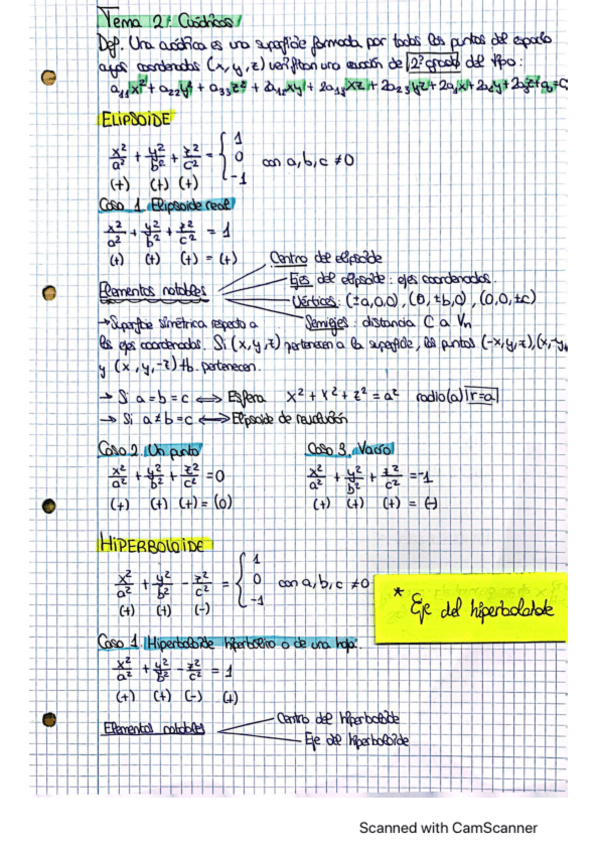 Tema 2: Cuádricas
Def. Una cuádrica es una superficie formada por todos los puntos del espacio
cuyas coordenadas (x, y, z) verifican una ecuación de 2º grado del tipo:
a₁₁x² + a₂₂y² + a₃₃z² + 2a₁₂xy + 2a₁₃xz + 2a₂₃yz + 2a₁x + 2a₂y + 2a₃z + a₀ = 0
ELIPSOIDE
x²/a² + y²/b² + z²/c² = { 1 0 -1 con a, b, c ≠ 0
(+) (+) (+)
Caso 1. Elipsoide real
x²/a² + y²/b² + z²/c² = 1
(+) (+) (+) = (+)
Centro del elipsoide
Ejes del elipsoide: ejes coordenados.
Elementos notables
Vértices: (±a,0,0), (0, ±b,0), (0,0,±c)
Semiejes: distancia C a Vn
→ Superficie simétrica respecto a
los ejes coordenados. Si (x, y, z) pertenecen a la superficie, los puntos (-x, y, z), (x, -y,
y (x, y, -z) tb. pertenecen.
→ Si a = b = c ⟷ Esfera x² + y² + z² = a² radio(a) r=a
→ Si a ≠ b = c ⟷ Elipsoide de revolución
Caso 2. Un punto Caso 3. Vacío
x²/a² + y²/b² + z²/c² = 0 x²/a² + y²/b² + z²/c² = -1
(+) (+) (+) = (0) (+) (+) (+) = (-)
HIPERBOLOIDE
x²/a² + y²/b² - z²/c² = { 1 0 -1 con a, b, c ≠ 0
(+) (+) (-)
* Eje del hiperboloide
Caso 1. Hiperboloide hiperbólico o de una hoja.
x²/a² + y²/b² - z²/c² = 1
(+) (+) (-) (+)
Elementos notables
Centro del hiperboloide
Eje del hiperboloide
Scanned with CamScanner